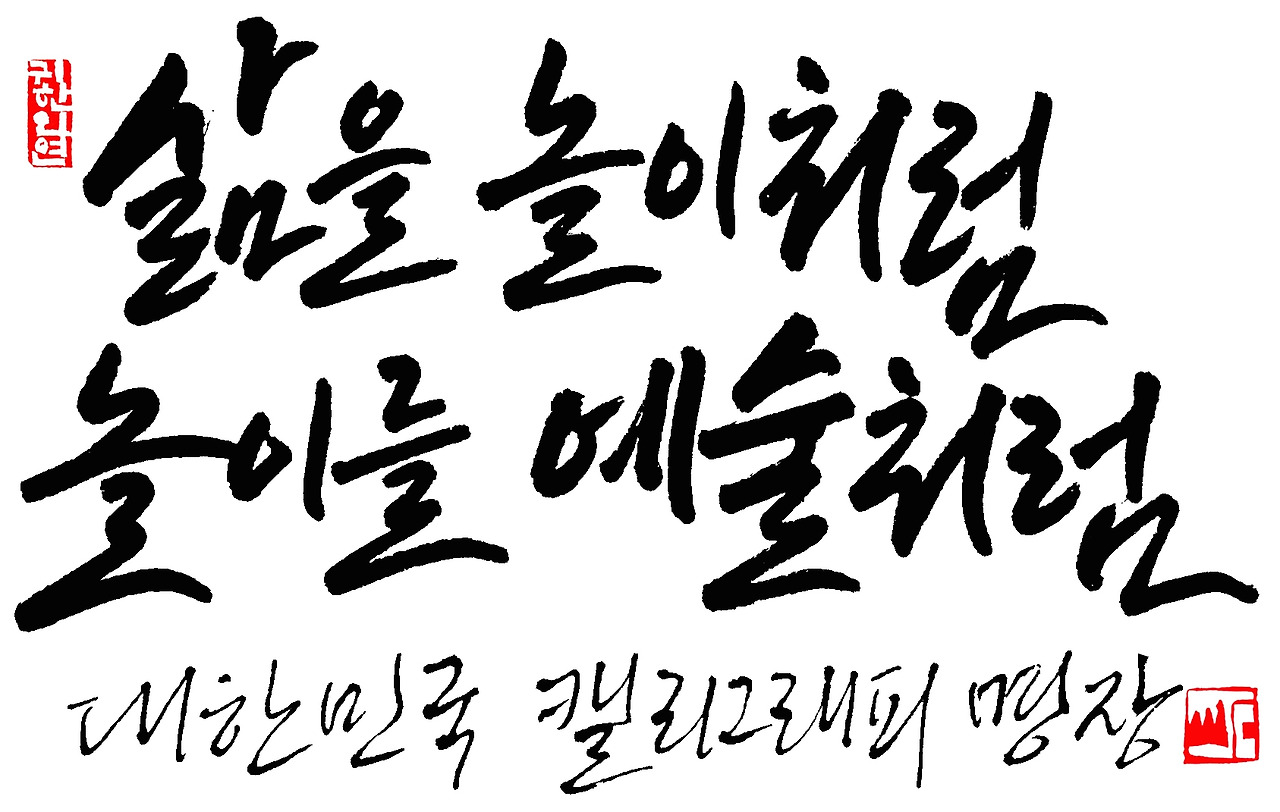 삶을 놀이처럼
놀이를 예술처럼
대한민국 캘리그래피 명장